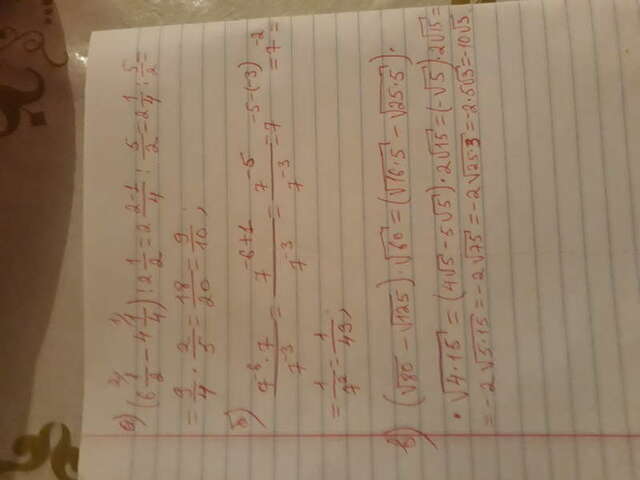 а) (6 1/2 − 4 1/4) : 2 1/2 = 2 (2−1)/4 : 5/2 = 2 1/4 : 5/2 =
= 9/4 · 2/5 = 18/20 = 9/10 ;
б) (7^-6 · 7)/7^-3 = 7^(-6+1)/7^-3 = 7^-5/7^-3 = 7^(-5-(-3)) = 7^-2 =
= 1/7^2 = 1/49 ;
в) (√80 − √125) · √60 = (√16·5 − √25·5) ·
· √4·15 = (4√5 − 5√5) · 2√15 = (−√5) · 2√15 =
= −2√5·15 = −2√75 = −2√25·3 = −2·5√3 = −10√3